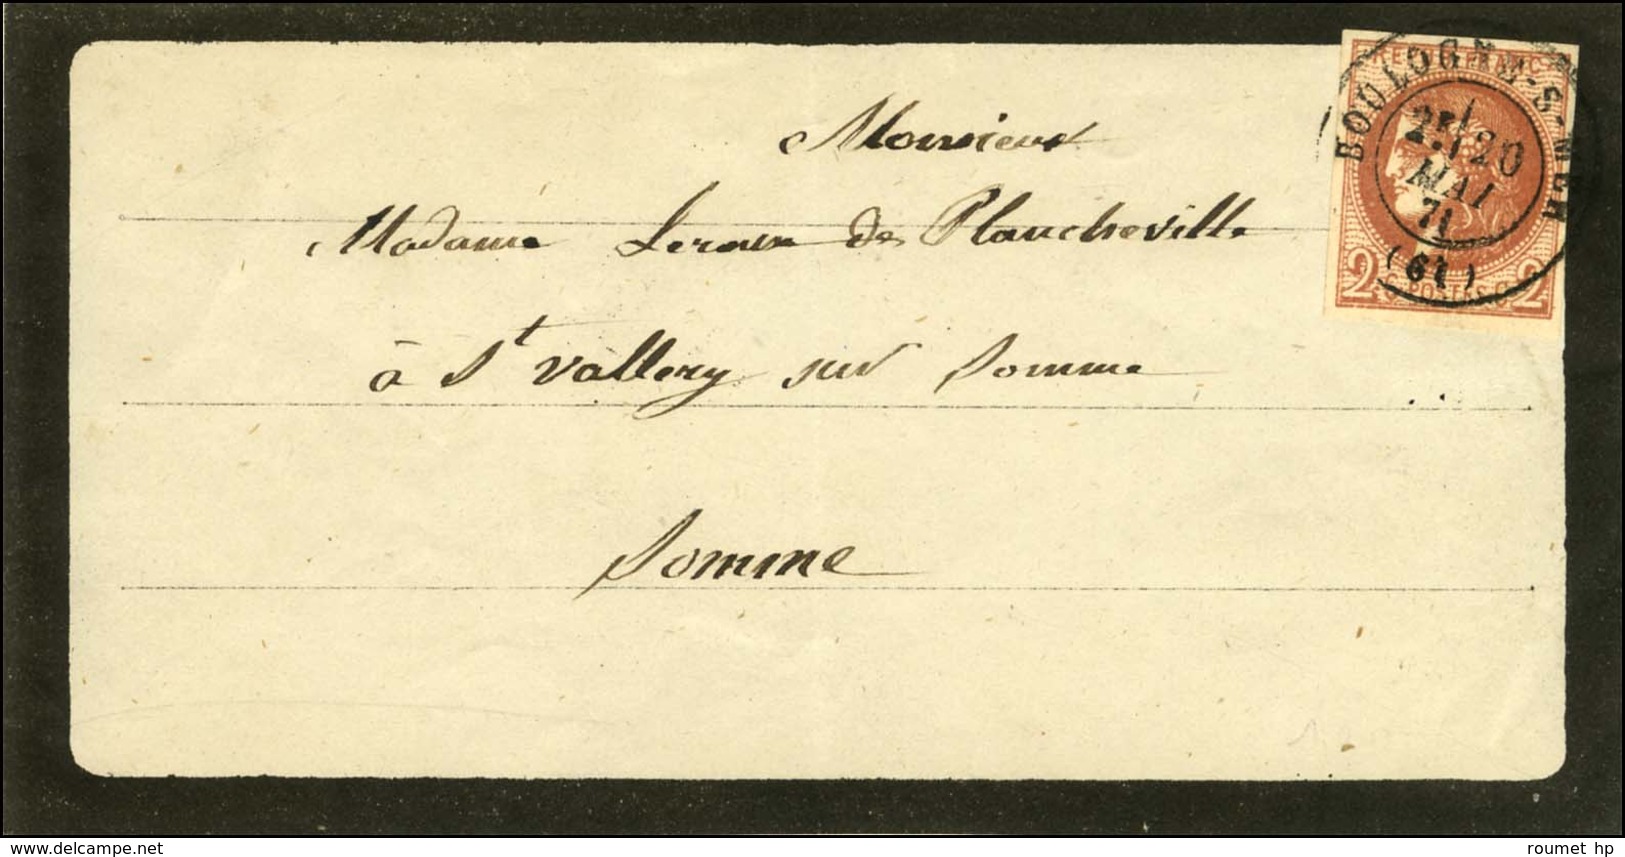 Monsieur
Madame Leroux de Plancheville
à St Vallery sur Somme
Somme
BOULOGNE-S-MER
2E/20
MAI
71
(61)
2 C. POSTES C. 2
www.delcampe.net
roumet hp